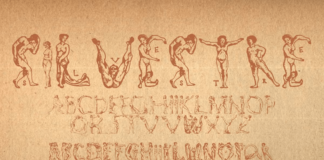 SILVESTRE
ABCDEFGHIJKLMNOP
QRSTUVWXYZ
ABCDEFGHIJKLMNOP